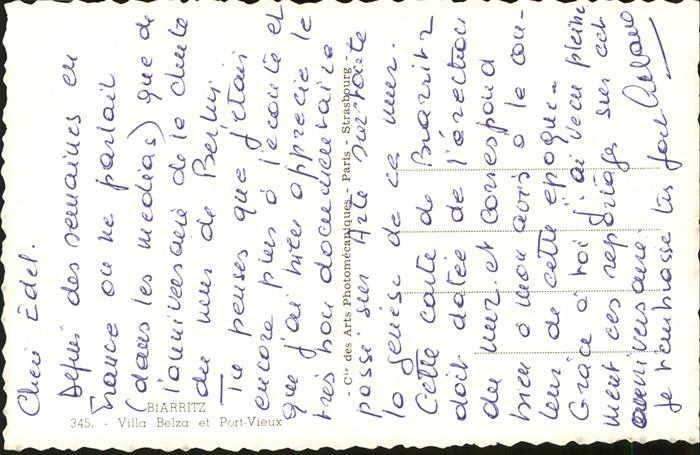 Chère Edel.
Depuis des semaines en
France on ne parlait
(dans les médias) que de
l'anniversaire de la chute
du mur de Berlin
Tu penses que j'étais
encore plus à l'écoute et
que j'ai bien apprécié le
très bon documentaire
passé sur Arte sur toute
la genèse de ce mur.
Cette carte de Biarritz
doit datée de l'érection
du mur et correspond
bien à mon avis à la cou-
leur de cette époque.
Grâce à toi j'ai vécu pleine
ment ces reportages sur cet
anniversaire
Je t'embrasse très fort
BIARRITZ
345. - Villa Belza et Port-Vieux
- Cie des Arts Photomécaniques - Paris - Strasbourg -